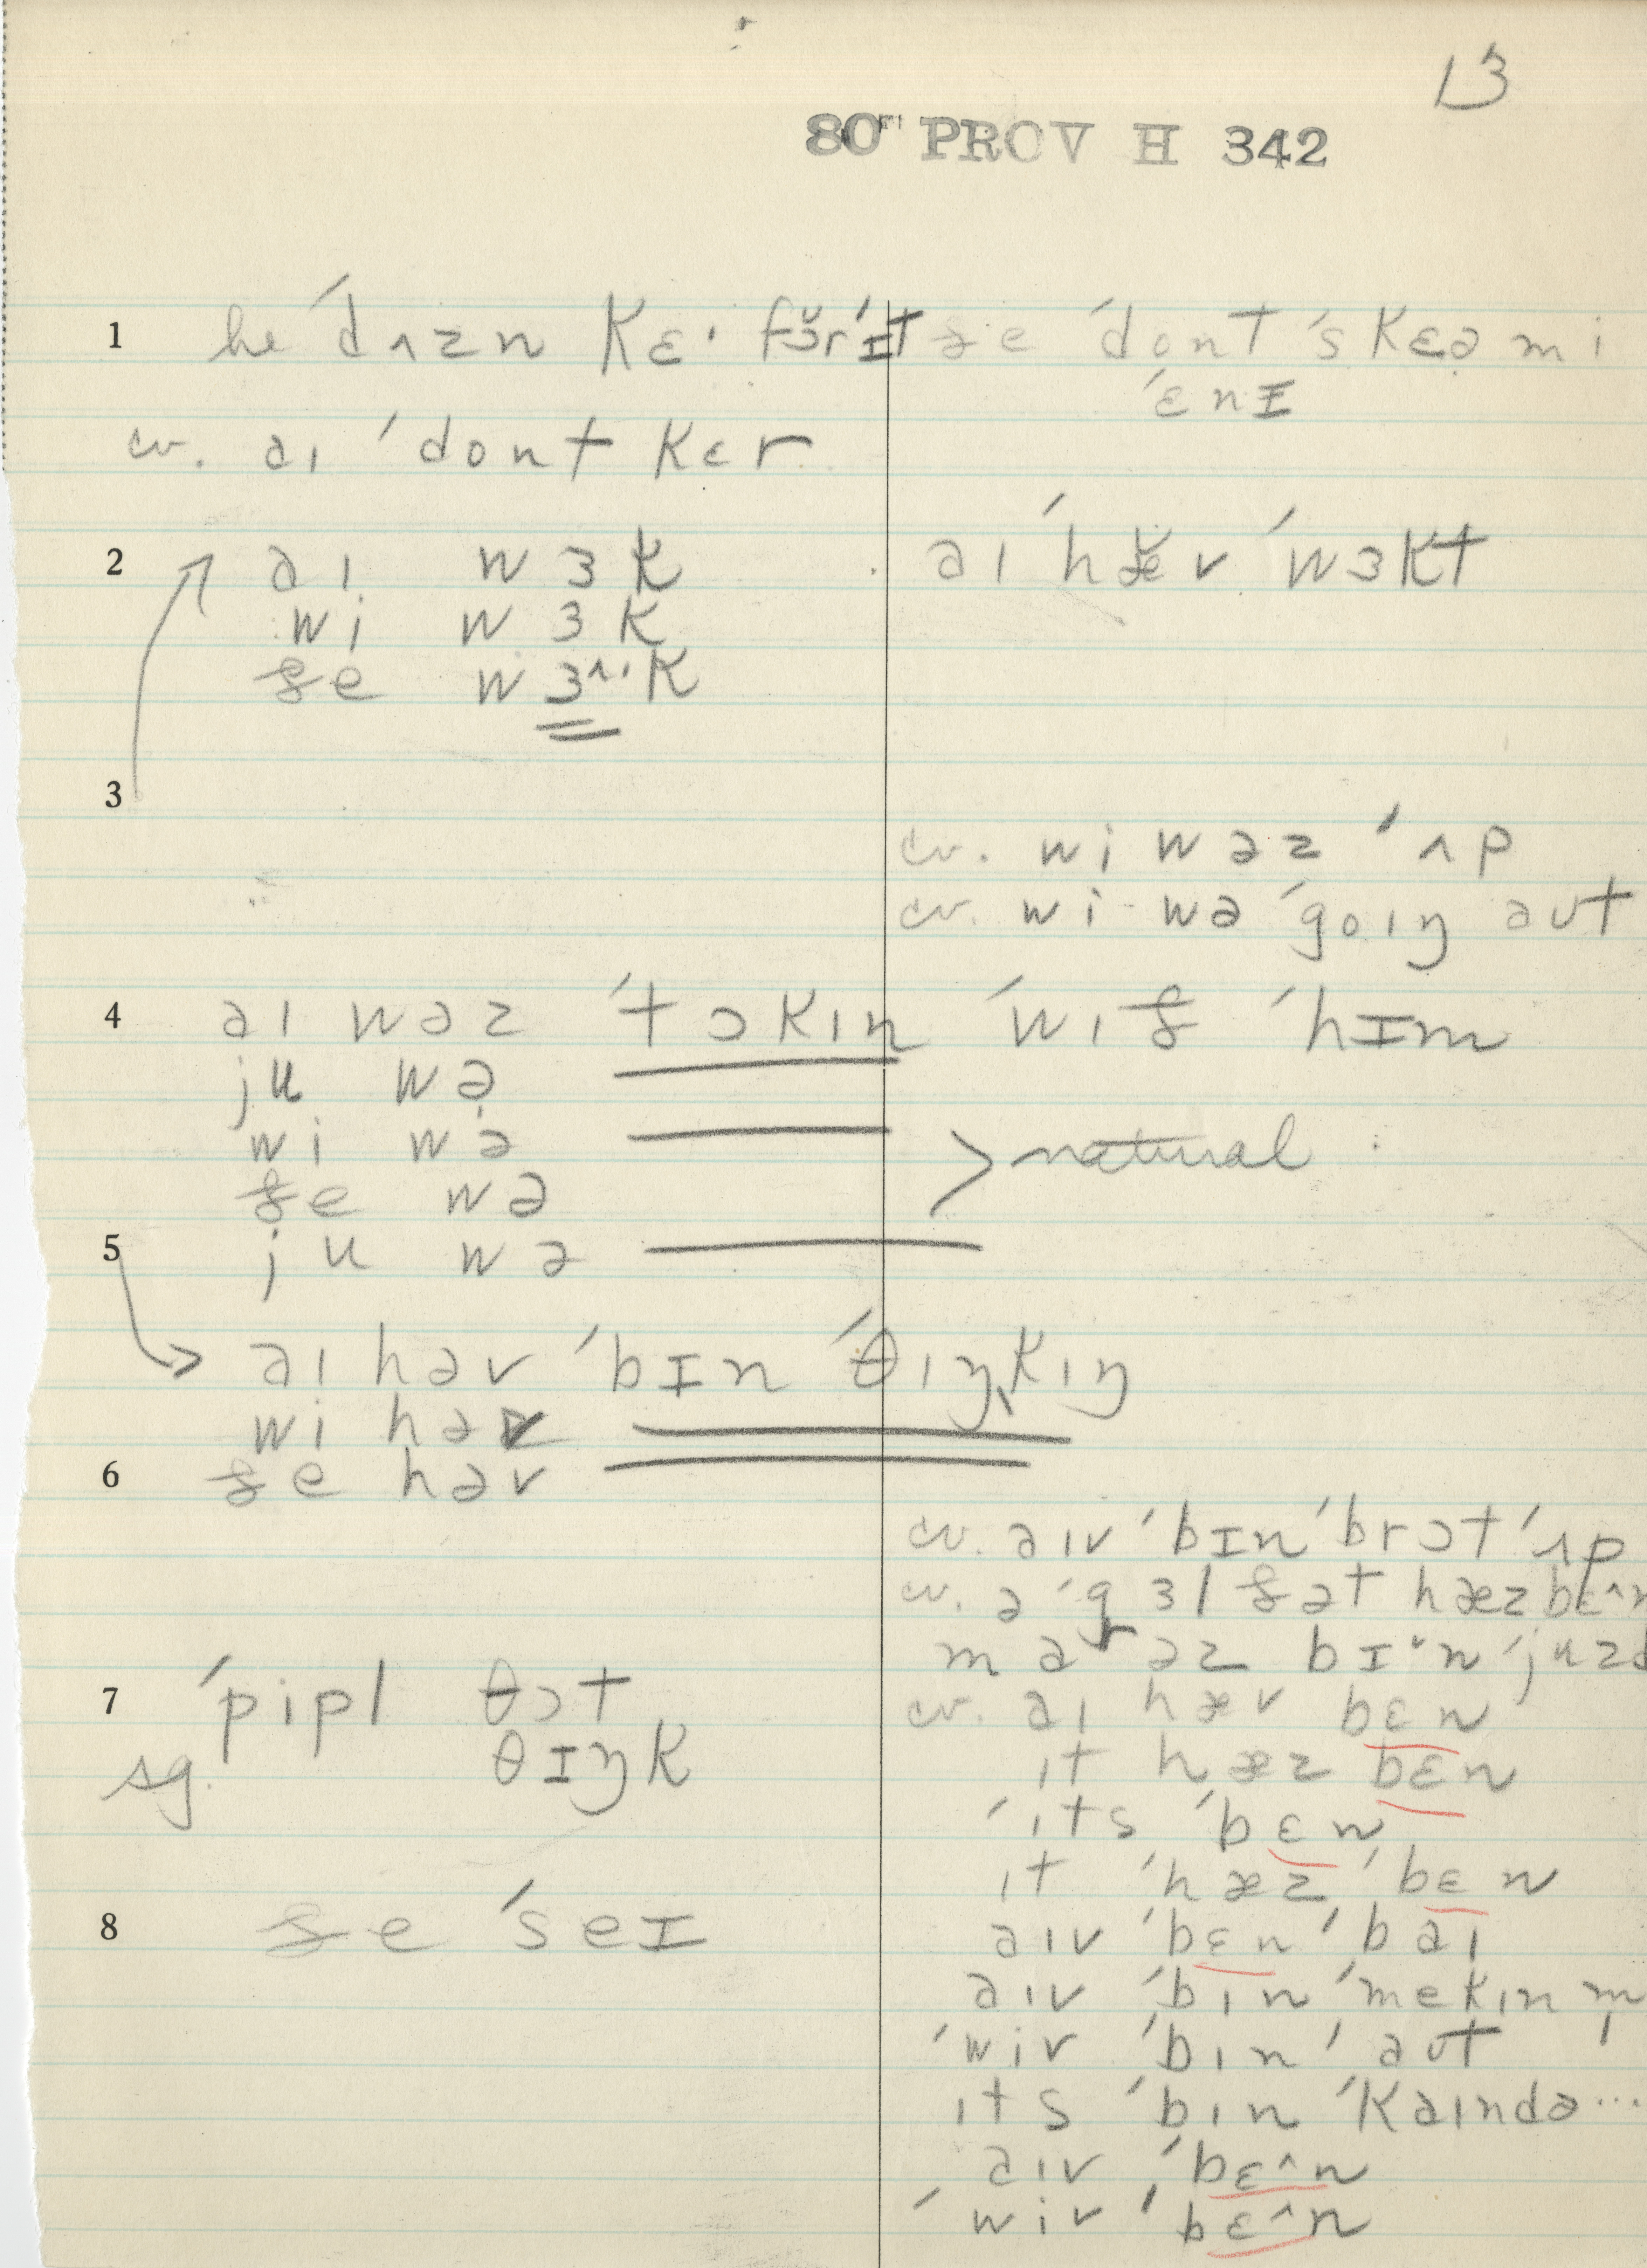 13
80" PROV H 342
1 he ˈdʌzn kɛ· fə̆rˈɪt ðe ˈdont ˈskɛə mi
ˈɛnɪ
cv. aɪ ˈdont kɛr
2 aɪ wɜk aɪ ˈhæ̆v ˈwɜkt
wi wɜk
ðe wɜ^·k
3
cv. wi wəz ˈʌp
cv. wi wə ˈgoɪŋ aʊt
4 aɪ wəz ˈtɔkɪn ˈwɪð ˈhɪm
ju wə
wi wə > natural
ðe wə
5 ju wə
aɪ həv ˈbɪn ˈθɪŋkɪŋ
wi həv
6 ðe həv
cv. aɪv ˈbɪn ˈbrɔt ˈʌp
cv. ə ˈgɜl ðət hæz bɛ^n
bɪ·n ˈjuzd
7 ˈpipl θɔt
cv. aɪ hæv bɛn
sg. θɪŋk
ɪt hæz bɛn
ˈɪts ˈbɛn
ɪt ˈhæz ˈbɛn
8 ðe ˈseɪ
aɪv ˈbɛn ˈbaɪ
aɪv ˈbɪn ˈmekɪn m
ˈwiv ˈbɪn ˈaʊt
ɪts ˈbɪn ˈkaɪndə...
aɪv ˈbɛ^n
ˈwiv ˈbɛ^n